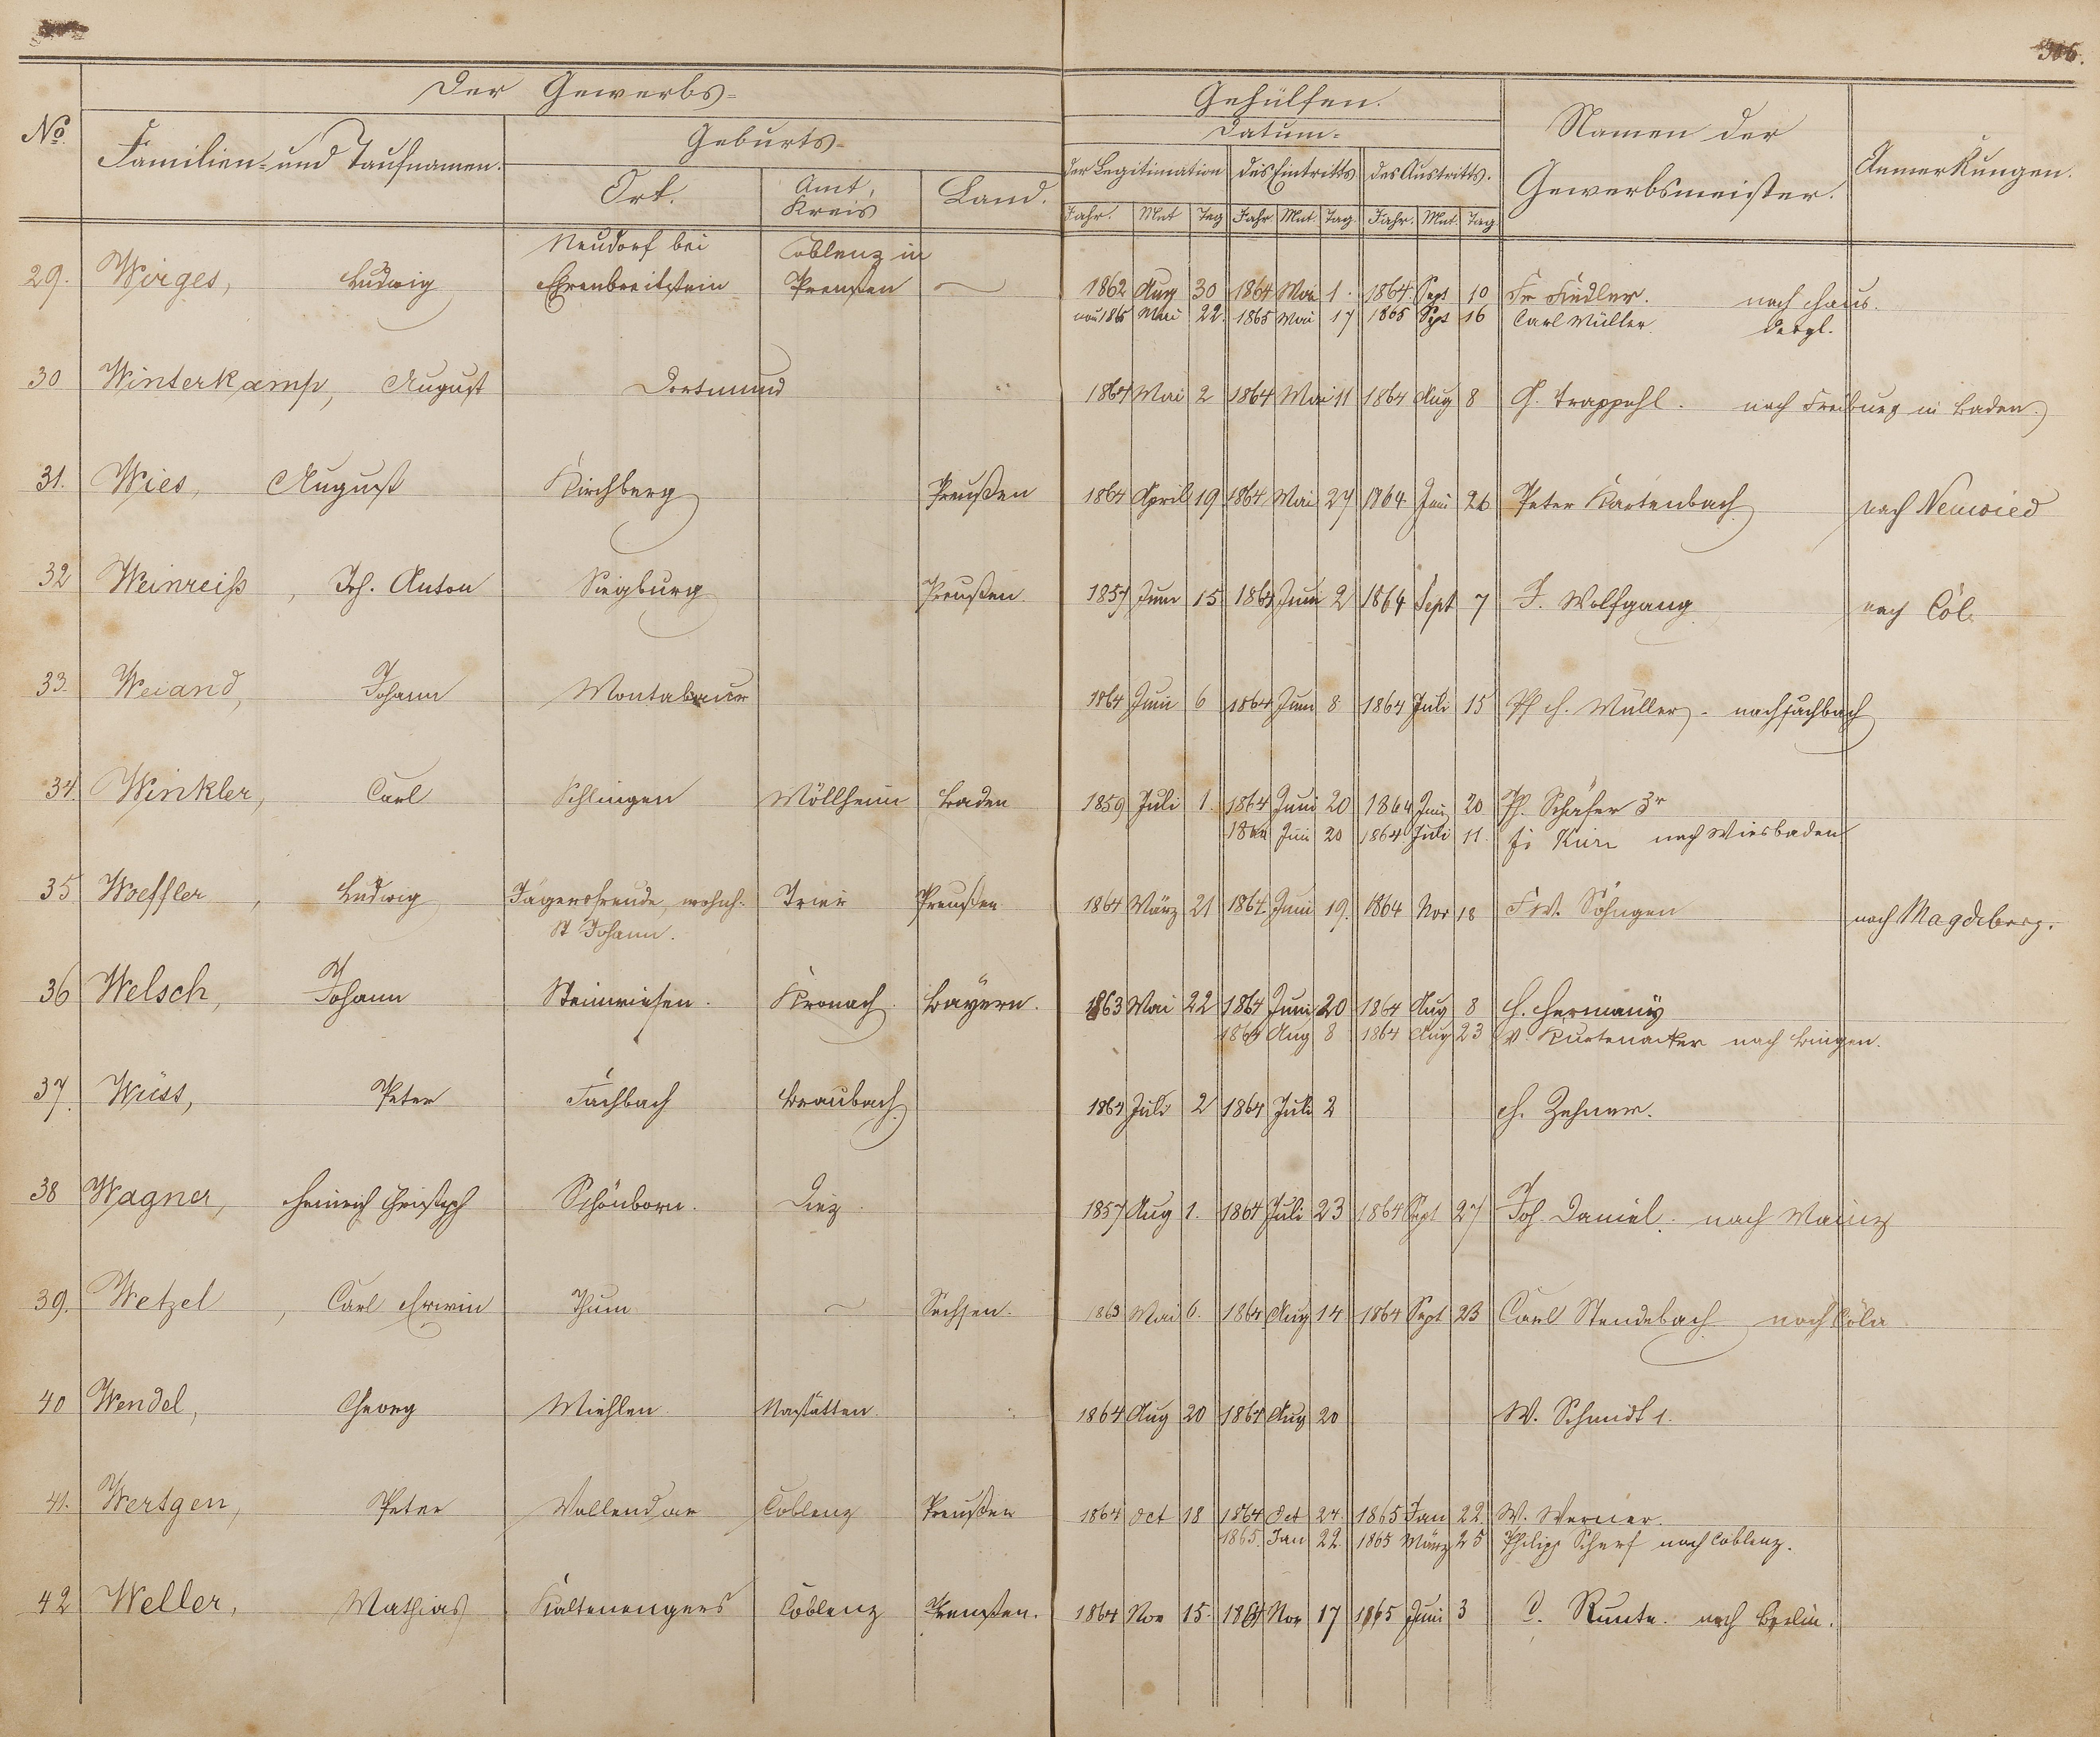 306.
Der Gewerbs- Gehülfen.
No. Familien- und Taufnamen. Geburts- Datum- Namen der Gewerbsmeister. Anmerkungen.
Ort. Amt, Kreis Land. der Legitimation des Eintritts des Austritts.
Jahr. Mnt Tag Jahr Mnt Tag. Jahr. Mnt. Tag
Neudorf bei Coblenz in
29. Wirges, Ludwig Ehrenbreitstein Preußen 1862 Aug 30 1864 Mai 1. 1864 Sept 10 Fr Fiedler. nach Haus.
1865 Mai 22. 1865 Mai 17 1865 Sept 16 Carl Müller dergl.
30 Winterkamp, August Dortmund 1864 Mai 2 1864 Mai 11 1864 Aug 8 G. Trappehl. nach Freiburg in Baden.
31. Wies, August Kirchberg Preußen 1864 April 19 1864 Mai 27 1864 Juni 26 Peter Kartenbach nach Neuwied
32 Weinreiß, Joh. Anton Siegburg Preußen. 1857 Juni 15 1864 Juni 2 1864 Sept 7 J. Wolfgang nach Cöl
33. Weiand, Johann Montabaur 1864 Juni 6 1864 Juni 8 1864 Juli 15 Ph H. Müller - nach Fachbach
34. Winkler, Carl Schlingen Möllheim Baden 1859 Juli 1. 1864 Juni 20 1864 Juni 20 Ph. Schäfer 3r
1864 Juni 20 1864 Juli 11. nach Wiesbaden
35 Woeffler, Ludwig Jägersfreude, wohnh. Trier Preußen 1864 März 21 1864. Juni 19. 1864 Nov 18 F W. Söhngen nach Magdeberg.
St Johann.
36 Welsch, Johann Steinwiesen. Kronach. Bayern. 1863 Mai 22 1864 Juni 20 1864 Aug 8 H. Hermany
1864 Aug 8 1864 Aug 23 nach Bingen.
37. Wüss, Peter Fachbach Braubach 1864 Juli 2 1864 Juli 2 H. Zehner.
38 Wagner, Heinrich Christoph Schönborn. Diez 1857 Aug 1. 1864 Juli 23 1864 Sept 27 Joh Daniel. nach Mainz
39. Wetzel, Carl Erwin Thum Sachsen. 1863 Mai 6. 1864 Aug 14 1864 Sept 23 Carl Stendebach nach Cöln
40 Wendel, Georg Miehlen Nastätten 1864 Aug 20 1864 Aug 20 W. Schmidt 1.
41. Wertgen, Peter Vallendar Coblenz Preußen 1864 Oct 18 1864 Oct 24. 1865 Jan 22. W. Werner.
1865. Jan 22. 1865 März 25 Philipp Scherf nach Coblenz.
42 Weller, Mathias Kaltenengers Coblenz Preußen. 1864 Nov 15. 1864 Nov 17 1865 Juni 3 C. Runte. nach Berlin.